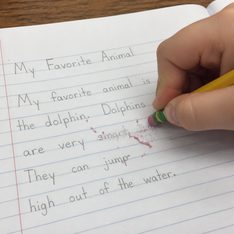 My Favorite Animal
My favorite animal is
the dolphin. Dolphins
are very
They can jump
high out of the water.